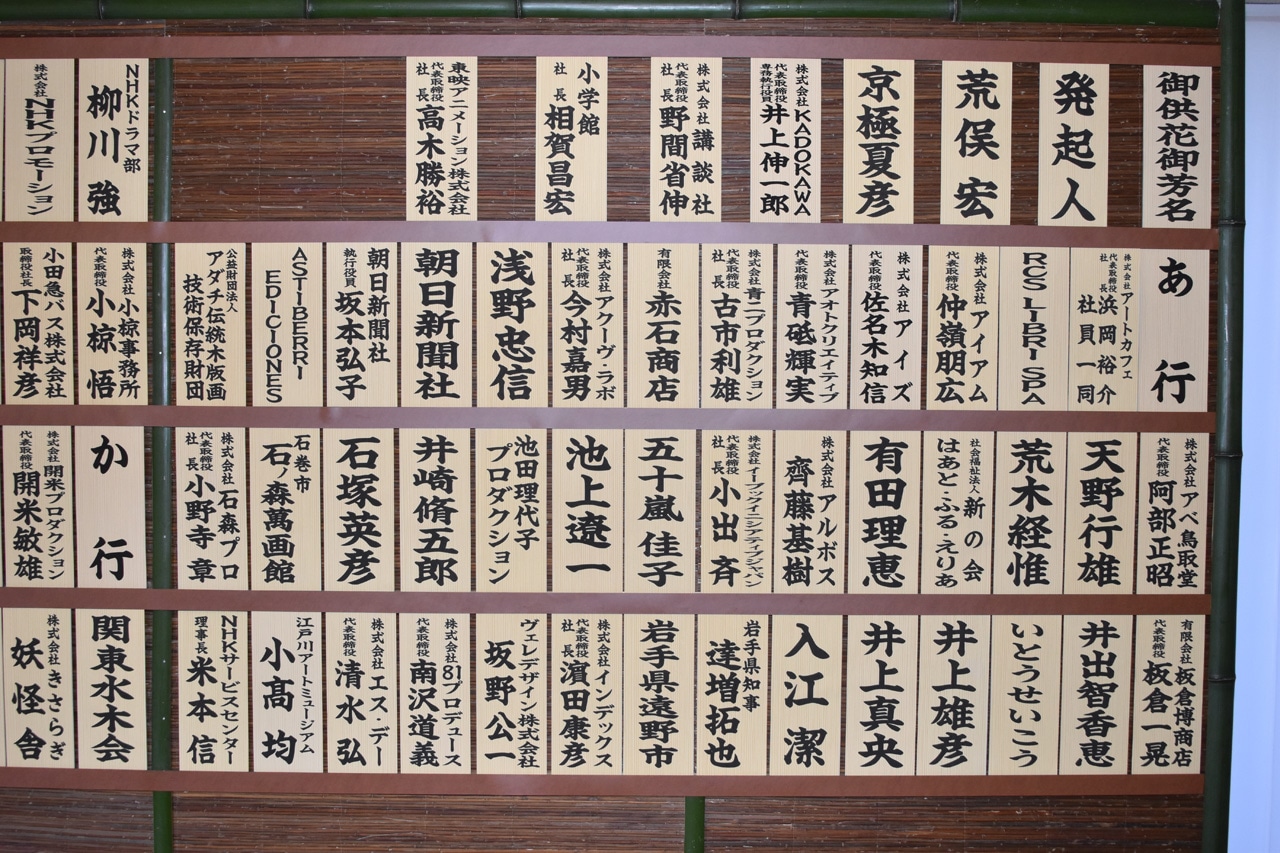 御供花御芳名
発起人
荒俣 宏
京極夏彦
株式会社KADOKAWA
専務執行役員
代表取締役
井上伸一郎
株式会社 講談社
代表取締役
社長
野間省伸
小学館
社長
相賀昌宏
東映アニメーション株式会社
代表取締役
社長
高木勝裕
NHKドラマ部
柳川 強
株式会社
NHKプロモーション
あ行
株式会社 アートカフェ
代表取締役
社長
浜岡裕介
社員一同
RCS LIBRI SPA
株式会社アイアム
代表取締役
仲嶺朋広
株式会社 アイズ
代表取締役
佐名木知信
株式会社アオトクリエイティブ
代表取締役
青砥輝実
株式会社青二プロダクション
代表取締役
社長
古市利雄
有限会社
赤石商店
株式会社アクーヴ・ラボ
代表取締役
社長
今村嘉男
浅野忠信
朝日新聞社
朝日新聞社
執行役員
坂本弘子
ASTIBERRI
EDICIONES
公益財団法人
アダチ伝統木版画
技術保存財団
株式会社 小椋事務所
代表取締役
小椋 悟
小田急バス株式会社
取締役社長
下岡祥彦
株式会社アベ鳥取堂
代表取締役
阿部正昭
天野行雄
荒木経惟
社会福祉法人 新の会
はあと・ふる・えりあ
有田理恵
株式会社 アルボス
齊藤基樹
株式会社イーブックイニシアティブジャパン
代表取締役
社長
小出 斉
五十嵐佳子
池上遼一
池田理代子
プロダクション
井崎脩五郎
石塚英彦
石巻市
石ノ森萬画館
株式会社石森プロ
代表取締役
社長
小野寺 章
か行
株式会社開米プロダクション
代表取締役
開米敏雄
有限会社 板倉博商店
代表取締役
板倉一晃
井出智香恵
いとうせいこう
井上雄彦
井上真央
入江 潔
岩手県知事
達増拓也
岩手県遠野市
株式会社インデックス
代表取締役
社長
濵田康彦
ヴェレデザイン株式会社
坂野公一
株式会社81プロデュース
代表取締役
南沢道義
株式会社 エス・デー
代表取締役
清水 弘
江戸川アートミュージアム
小髙 均
NHKサービスセンター
理事長
米本 信
関東水木会
株式会社きさらぎ
妖怪舎